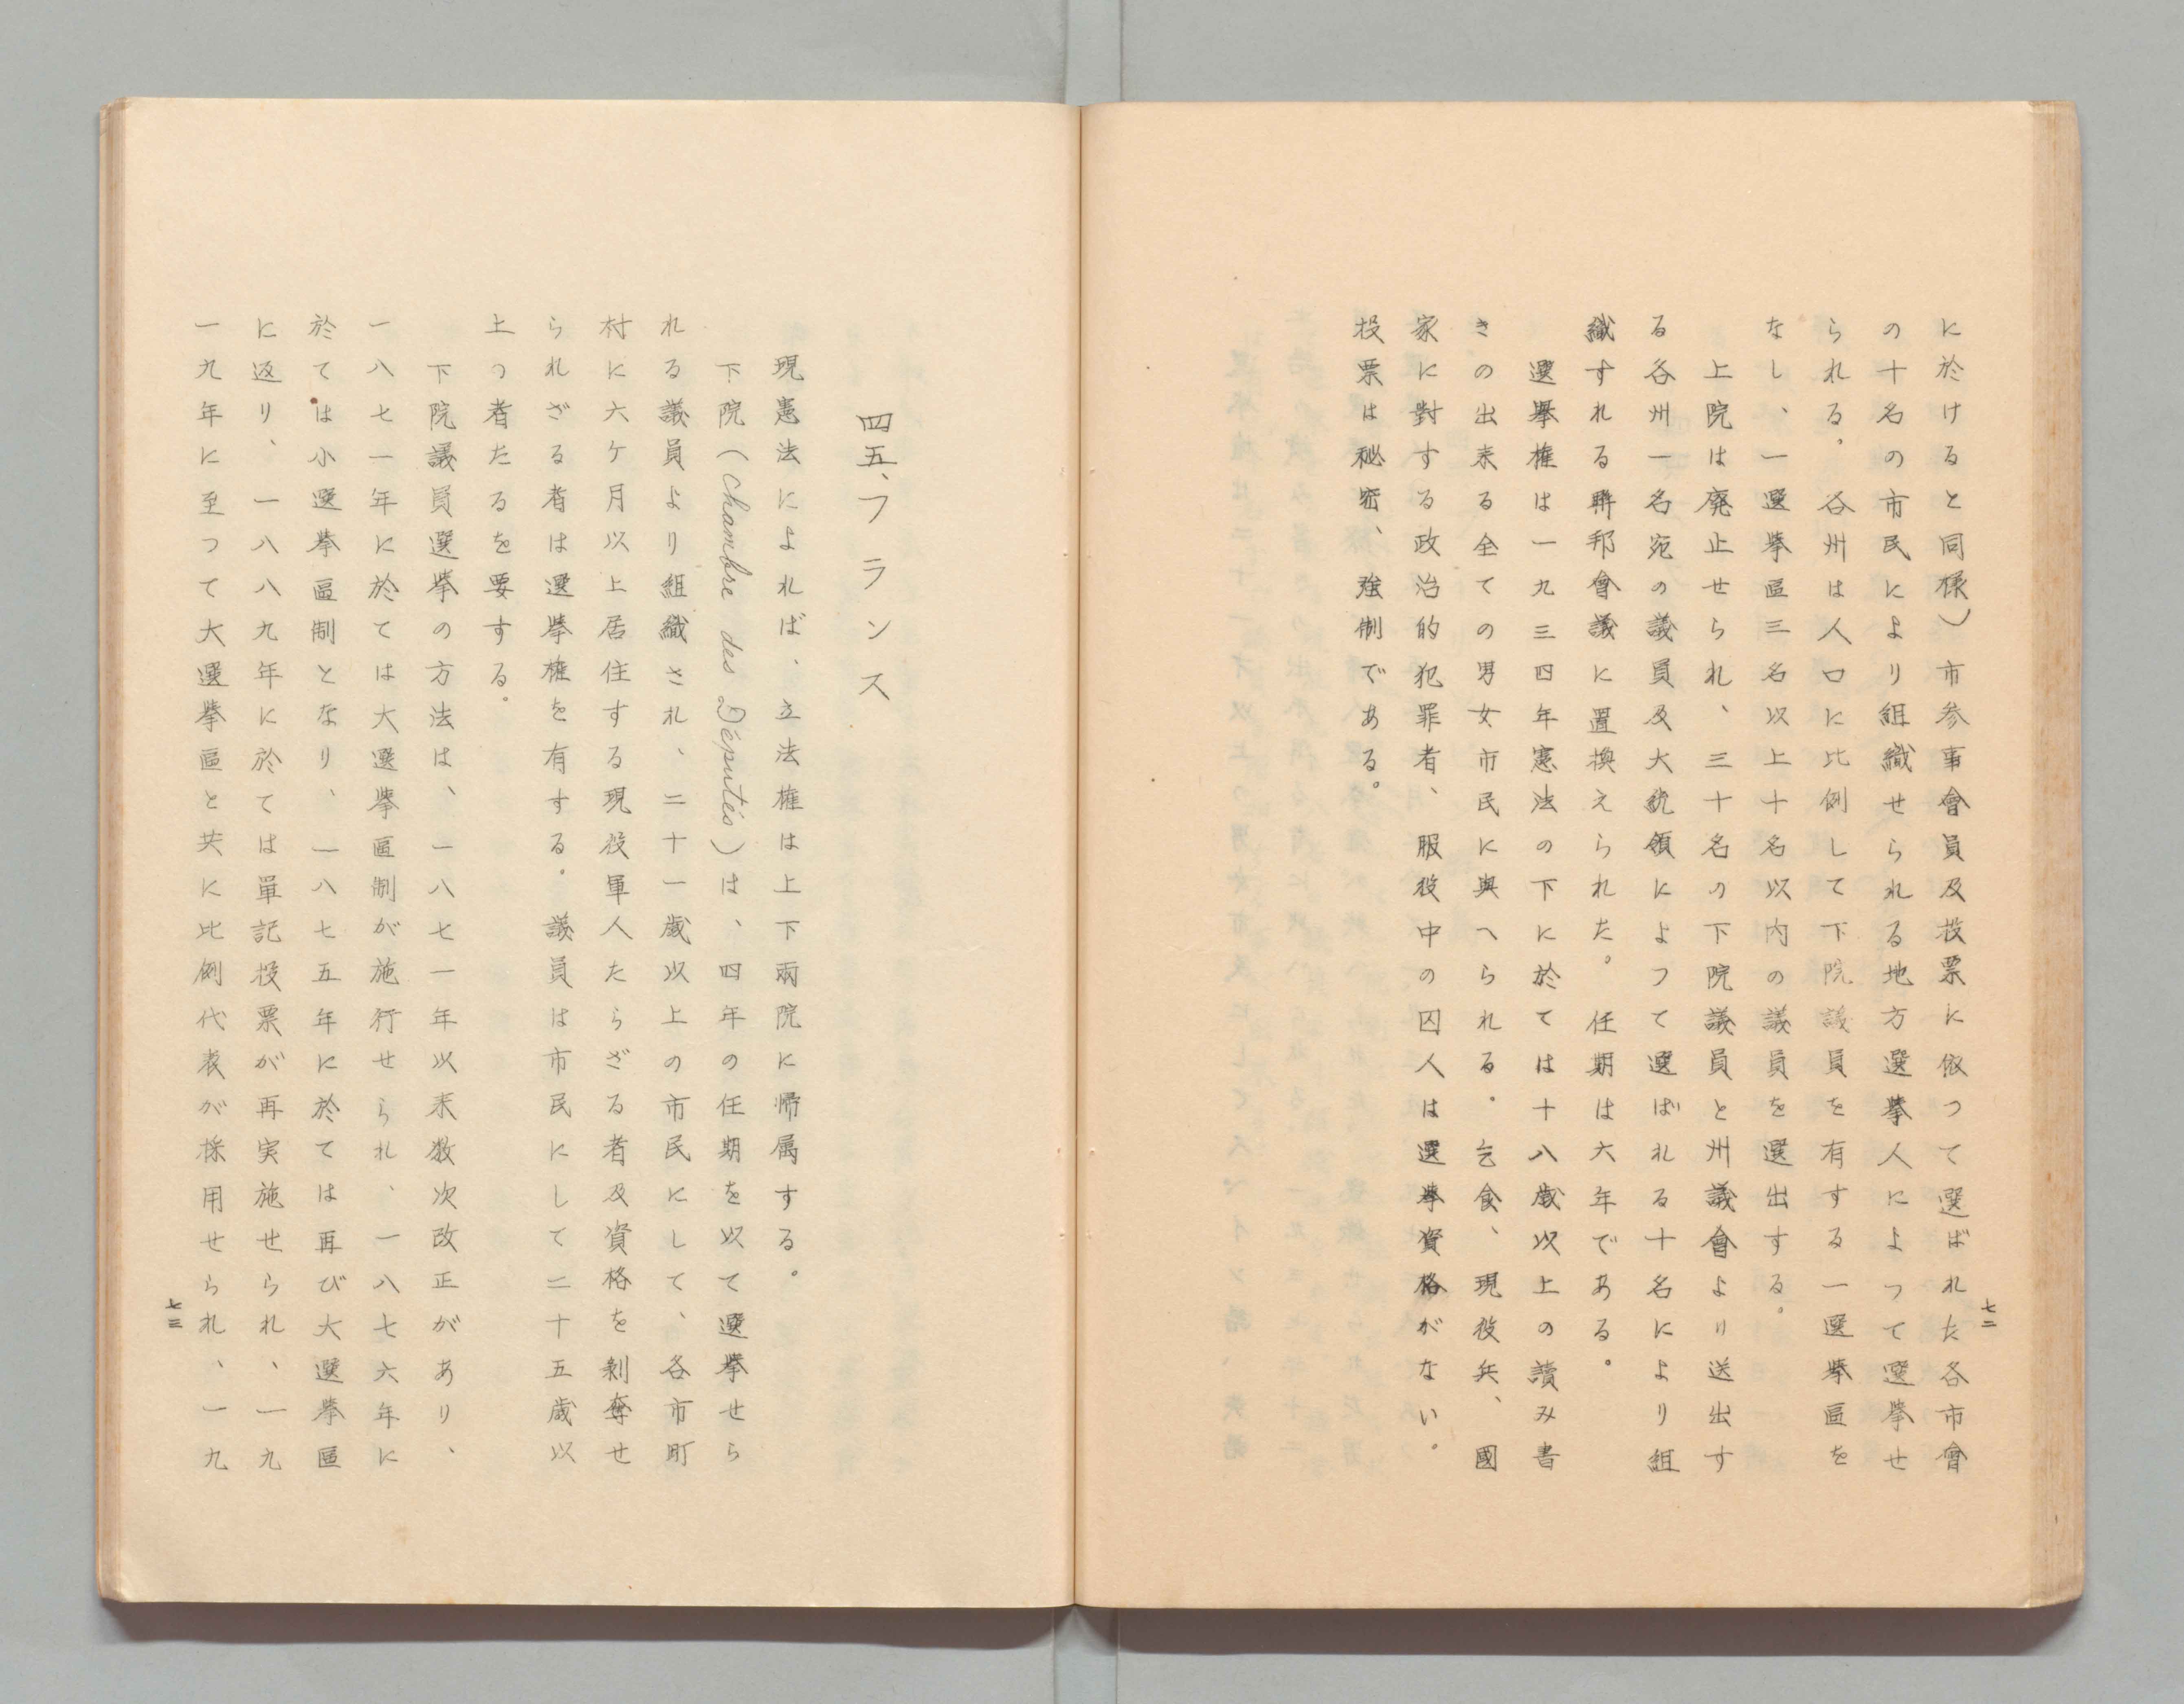 に於けると同様）市参事會員及投票に依つて選ばれた各市會
の十名の市民により組織せられる地方選挙人によつて選挙せ
られる。各州は人口に比例して下院議員を有する一選挙區を
なし、一選挙區三名以上十名以内の議員を選出する。
上院は廃止せられ、三十名の下院議員と州議會より送出す
る各州一名宛の議員及大統領によつて選ばれる十名により組
織すれる聯邦會議に置換えられた。任期は六年である。
選挙権は一九三四年憲法の下に於ては十八歳以上の讀み書
きの出来る全ての男女市民に與へられる。乞食、現役兵、國
家に對する政治的犯罪者、服役中の囚人は選挙資格がない。
投票は秘密、強制である。
七二
四五、フランス
現憲法によれば、立法権は上下兩院に帰属する。
下院（Chambre des Députés）は、四年の任期を以て選挙せら
れる議員より組織され、二十一歳以上の市民にして、各市町
村に六ケ月以上居住する現役軍人たらざる者及資格を剝奪せ
られざる者は選挙権を有する。議員は市民にして二十五歳以
上の者たるを要する。
下院議員選挙の方法は、一八七一年以来数次改正があり、
一八七一年に於ては大選挙區制が施行せられ、一八七六年に
於ては小選挙區制となり、一八七五年に於ては再び大選挙區
に返り、一八八九年に於ては單記投票が再実施せられ、一九
一九年に至つて大選挙區と共に比例代表が採用せられ、一九
七三